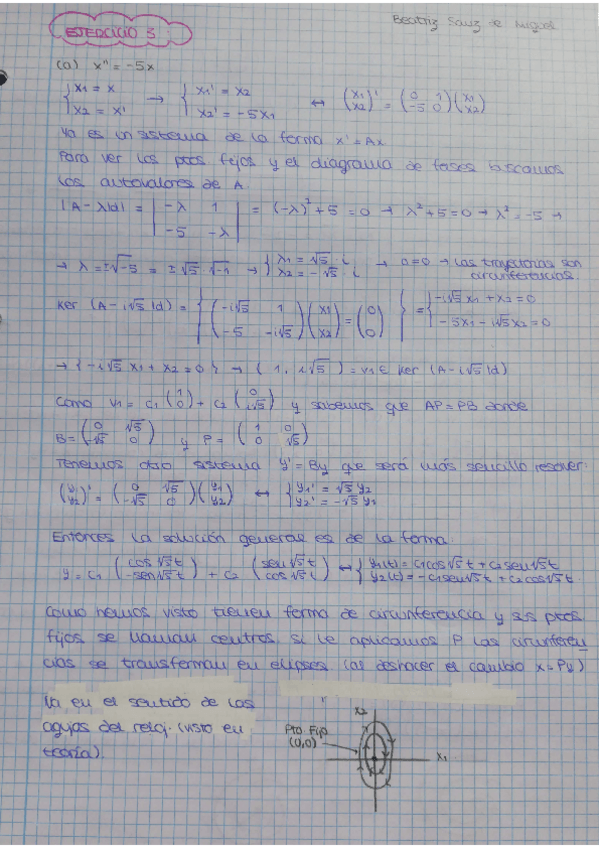 Beatriz Sanz de Miguel
EJERCICIO 5
(a) x'' = -5x
{ x1 = x → { x1' = x2 ↔ (x1 x2)' = (0 1 -5 0)(x1 x2)
{ x2 = x' { x2' = -5x1
Ya es un sistema de la forma x' = Ax
Para ver los ptos fijos y el diagrama de fases buscamos
los autovalores de A.
|A - λId| = | -λ 1 -5 -λ | = (-λ)² + 5 = 0 → λ² + 5 = 0 → λ² = -5 →
→ λ = ±√-5 = ±√5 · √-1 → { λ1 = √5 · i λ2 = -√5 · i → a=0 → Las trayectorias son
circunferencias.
Ker (A - i√5 Id) = { (-i√5 1 -5 -i√5)(x1 x2) = (0 0) } = { -i√5 x1 + x2 = 0
-5x1 - i√5 x2 = 0
→ { -i√5 x1 + x2 = 0 } → (1, i√5) = v1 ∈ Ker (A - i√5 Id)
Como v1 = c1 (1 0) + c2 (0 i√5) y sabemos que AP = PB donde
B = (0 √5 -√5 0) y P = (1 0 0 √5)
Tenemos otro sistema y' = By que será más sencillo resolver.
(y1 y2)' = (0 √5 -√5 0)(y1 y2) ↔ { y1' = √5 y2 y2' = -√5 y1
Entonces la solución general es de la forma:
y = c1 (cos√5t -sen√5t) + c2 (sen√5t cos√5t) ↔ { y1(t) = c1cos√5t + c2 sen√5t
y2(t) = -c1sen√5t + c2cos√5t
Como hemos visto tienen forma de circunferencia y sus ptos
fijos se llaman centros, si le aplicamos P las circunferen
cias se transforman en elipses (al deshacer el cambio x = Py)
la en el sentido de las
agujas del reloj. (visto en
teoría).
Pto Fijo
(0,0)
x2
x1